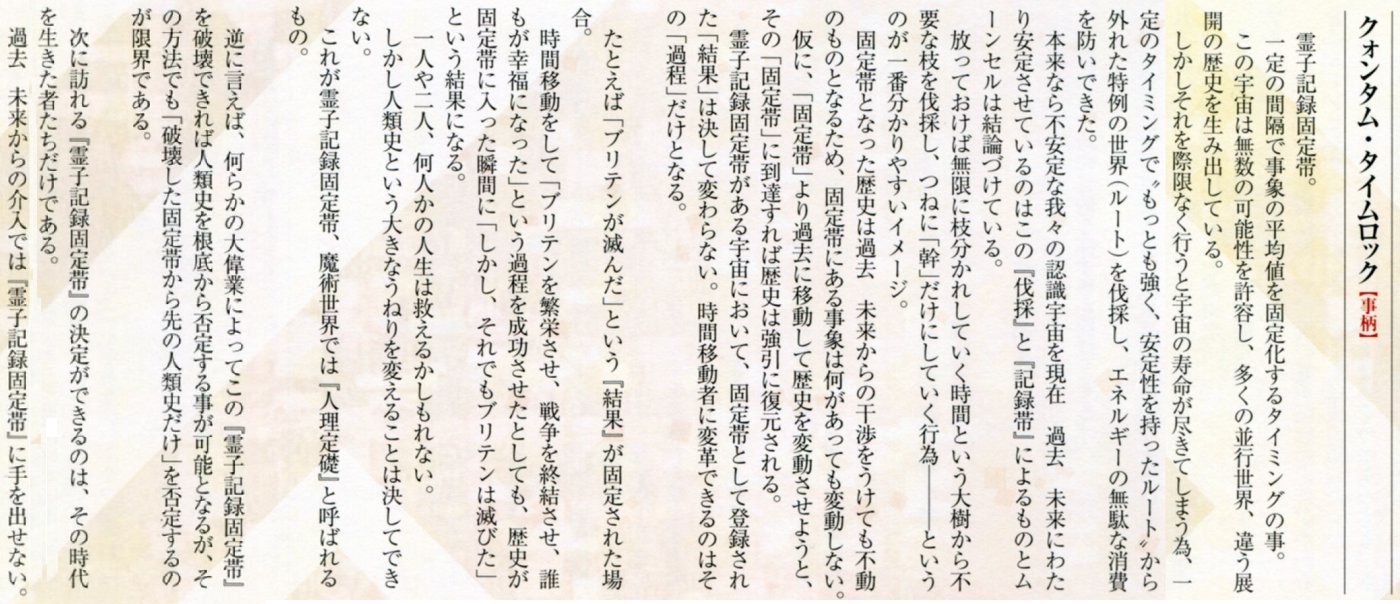 クォンタム・タイムロック【事柄】
霊子記録固定帯。
一定の間隔で事象の平均値を固定化するタイミングの事。
この宇宙は無数の可能性を許容し、多くの並行世界、違う展
開の歴史を生み出している。
しかしそれを際限なく行うと宇宙の寿命が尽きてしまう為、一
定のタイミングで〝もっとも強く、安定性を持ったルート〟から
外れた特例の世界（ルート）を伐採し、エネルギーの無駄な消費
を防いできた。
本来なら不安定な我々の認識宇宙を現在　過去　未来にわた
り安定させているのはこの『伐採』と『記録帯』によるものとム
ーンセルは結論づけている。
放っておけば無限に枝分かれしていく時間という大樹から不
要な枝を伐採し、つねに「幹」だけにしていく行為――という
のが一番分かりやすいイメージ。
固定帯となった歴史は過去　未来からの干渉をうけても不動
のものとなるため、固定帯にある事象は何があっても変動しない。
仮に、「固定帯」より過去に移動して歴史を変動させようと、
その「固定帯」に到達すれば歴史は強引に復元される。
霊子記録固定帯がある宇宙において、固定帯として登録され
た「結果」は決して変わらない。時間移動者に変革できるのはそ
の「過程」だけとなる。
たとえば「ブリテンが滅んだ」という『結果』が固定された場
合。
時間移動をして「ブリテンを繁栄させ、戦争を終結させ、誰
もが幸福になった」という過程を成功させたとしても、歴史が
固定帯に入った瞬間に「しかし、それでもブリテンは滅びた」
という結果になる。
一人や二人、何人かの人生は救えるかもしれない。
しかし人類史という大きなうねりを変えることは決してでき
ない。
これが霊子記録固定帯、魔術世界では『人理定礎』と呼ばれる
もの。
逆に言えば、何らかの大偉業によってこの『霊子記録固定帯』
を破壊できれば人類史を根底から否定する事が可能となるが、そ
の方法でも「破壊した固定帯から先の人類史だけ」を否定するの
が限界である。
次に訪れる『霊子記録固定帯』の決定ができるのは、その時代
を生きた者たちだけである。
過去　未来からの介入では『霊子記録固定帯』に手を出せない。